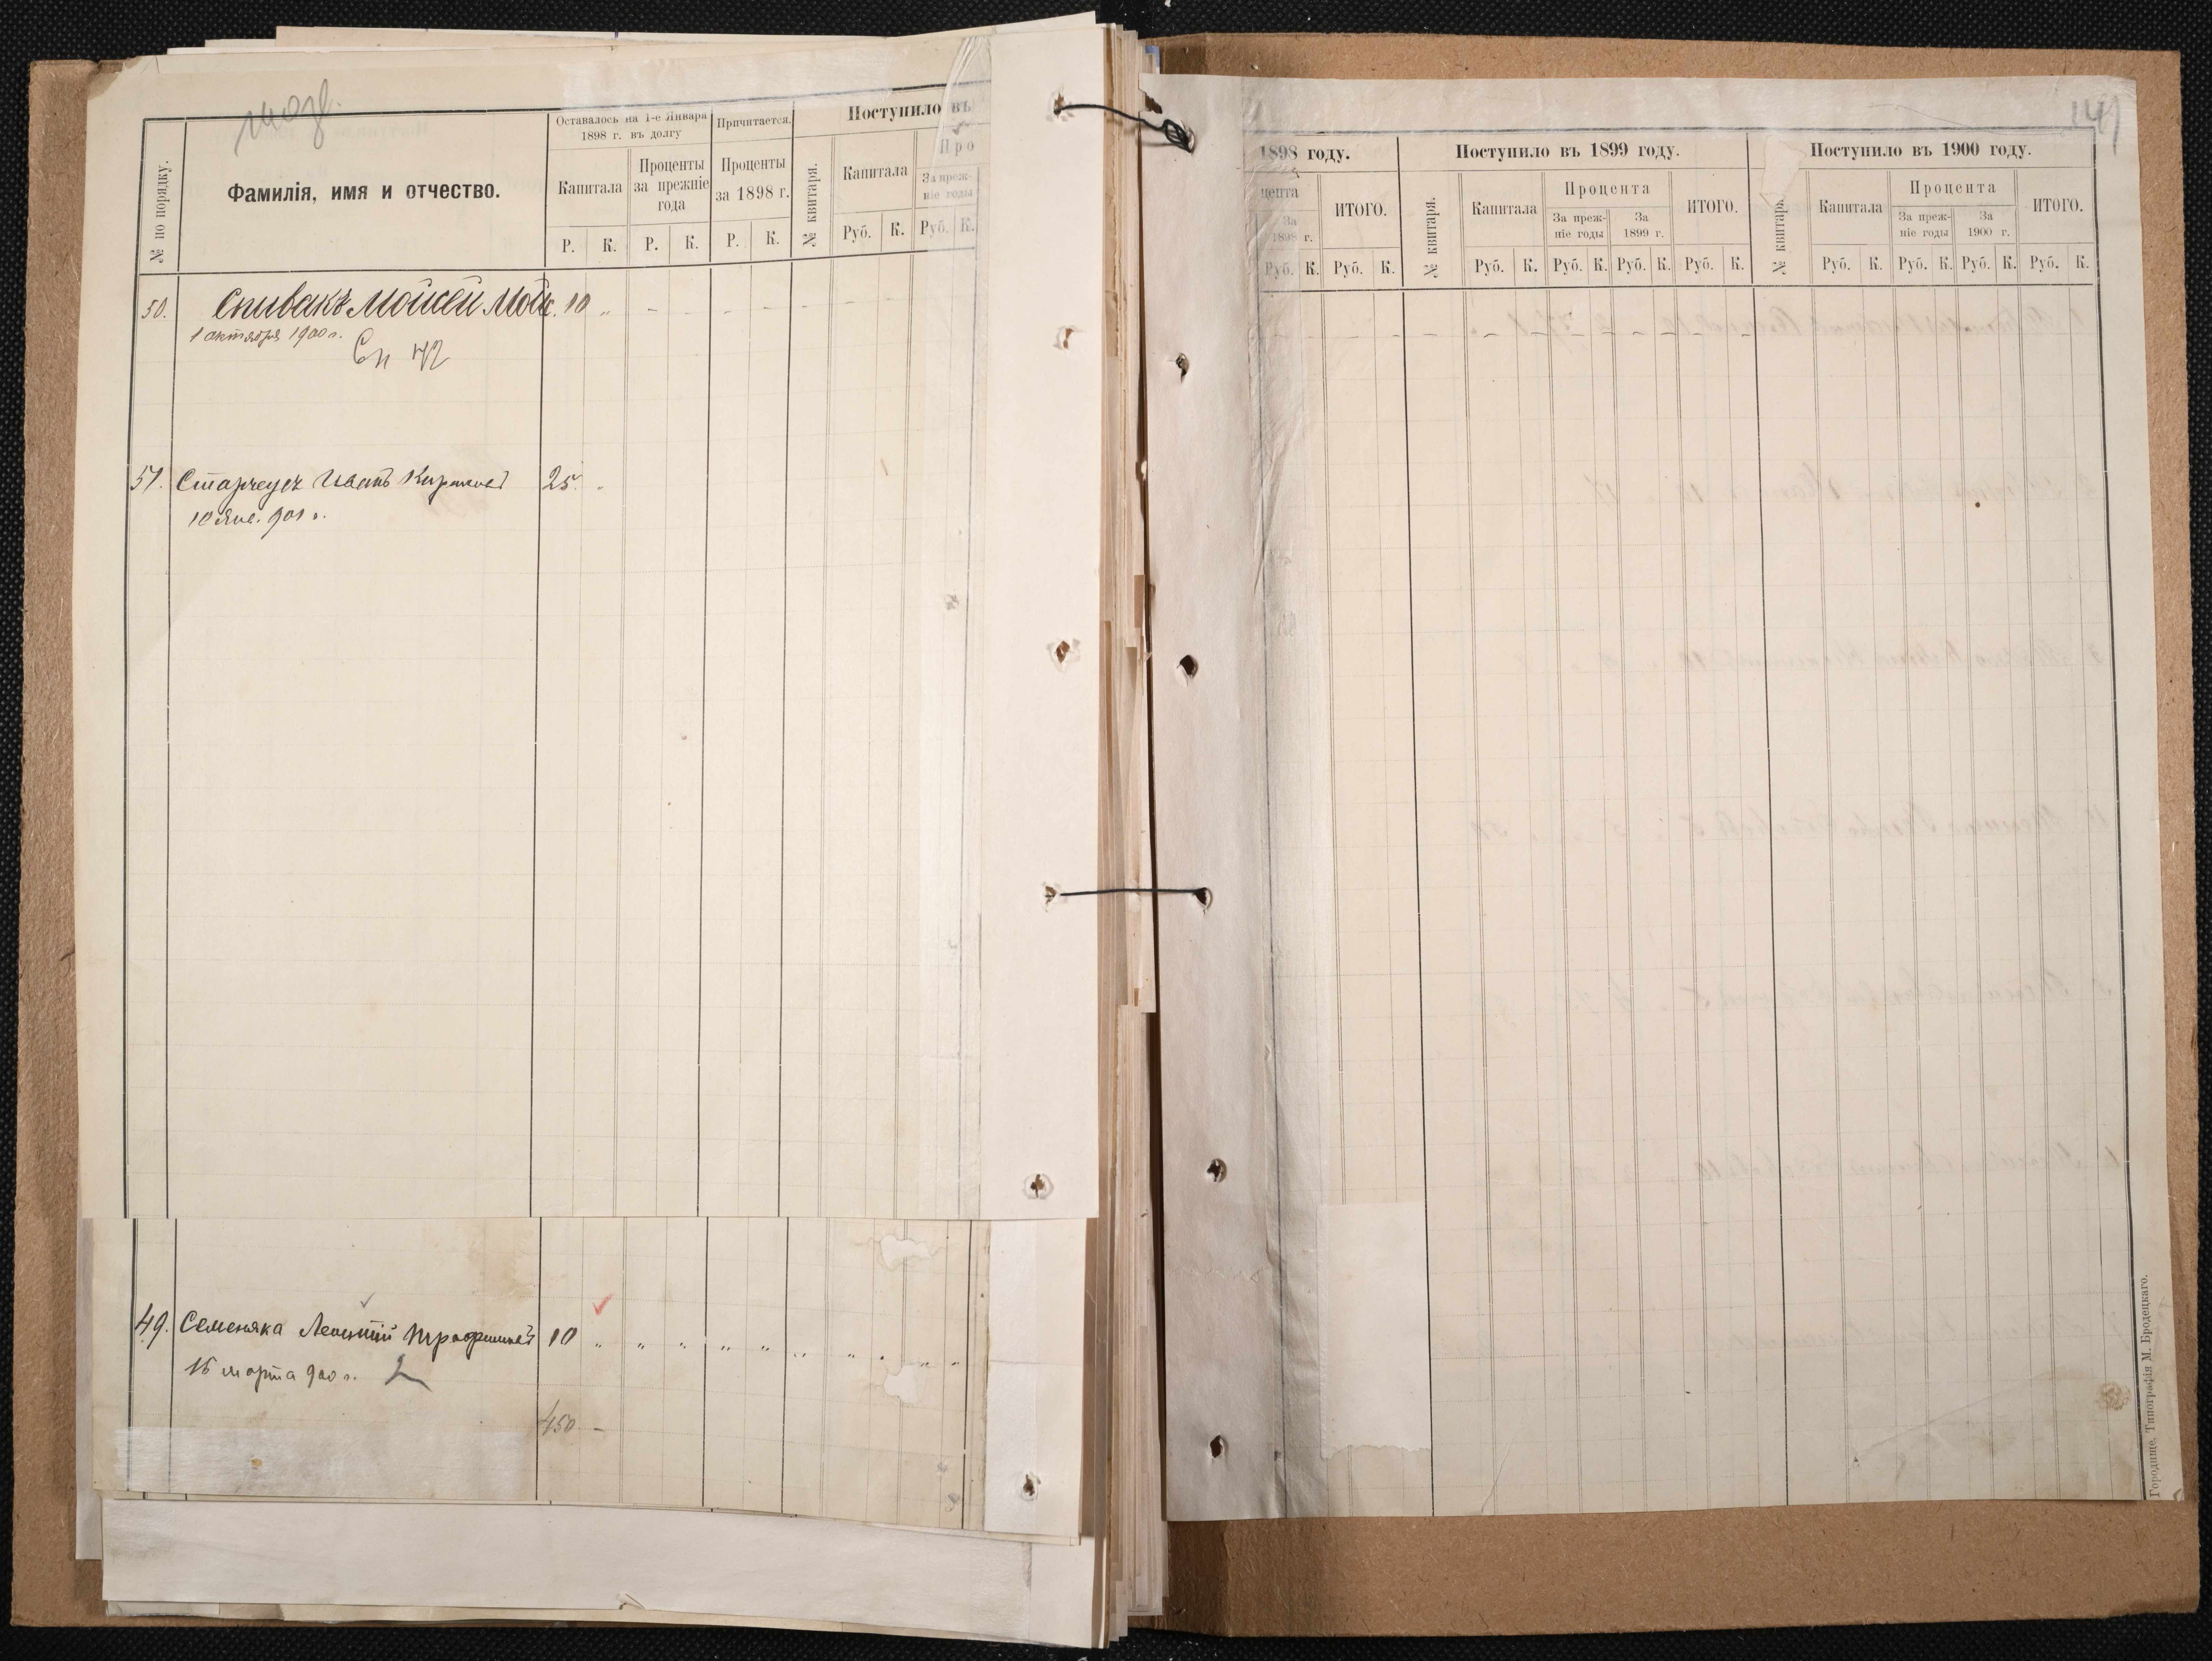 Оставалось на 1-е Января
1898 г. въ долгу
Причитается.
Поступило въ
№ по порядку.
Фамилія, имя и отчество.
Капитала
Проценты
за прежніе
года
Проценты
за 1898 г.
№ квитаря.
Капитала
Про
За преж-
ніе годы
Р. К. Р. К. Р. К. Руб. К. Руб. К.
50. Спивакъ Мойсей Мойс. 10 „ - - - - - - - -
1 октября 1900 г.
Сп 42
51. Иванъ 25. „
10 Янв. 901 г.
49. Семеняка 10 „ „ „ „ „ „ „ „ „ „
16 марта 900 г. 2
450 -
141
1898 году.
Поступило въ 1899 году.
Поступило въ 1900 году.
цента
За
1898 г.
ИТОГО.
№ квитаря.
Капитала
Процента
За преж-
ніе годы
За
1899 г.
ИТОГО.
№ квитаря.
Капитала
Процента
За преж-
ніе годы
За
1900 г.
ИТОГО.
Руб. К. Руб. К. Руб. К. Руб. К. Руб. К. Руб. К. Руб. К. Руб. К. Руб. К. Руб. К.
Городище, Типографія М. Бродецкаго.